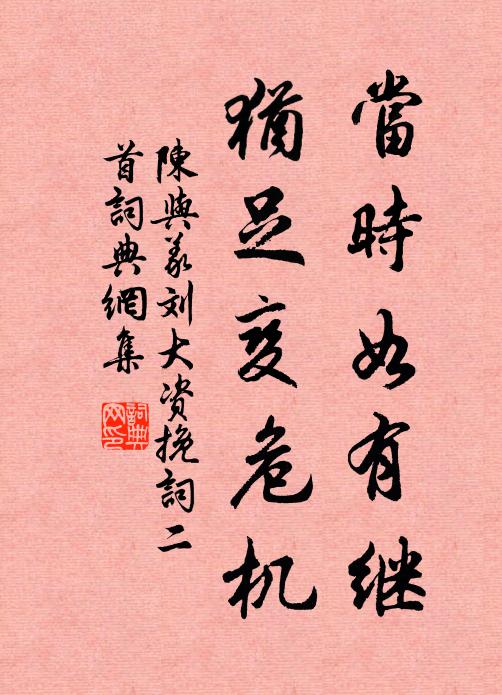 當時如有継
猶足变危机
陳與義刘大资挽詞二
首詞典網集
詞典网印